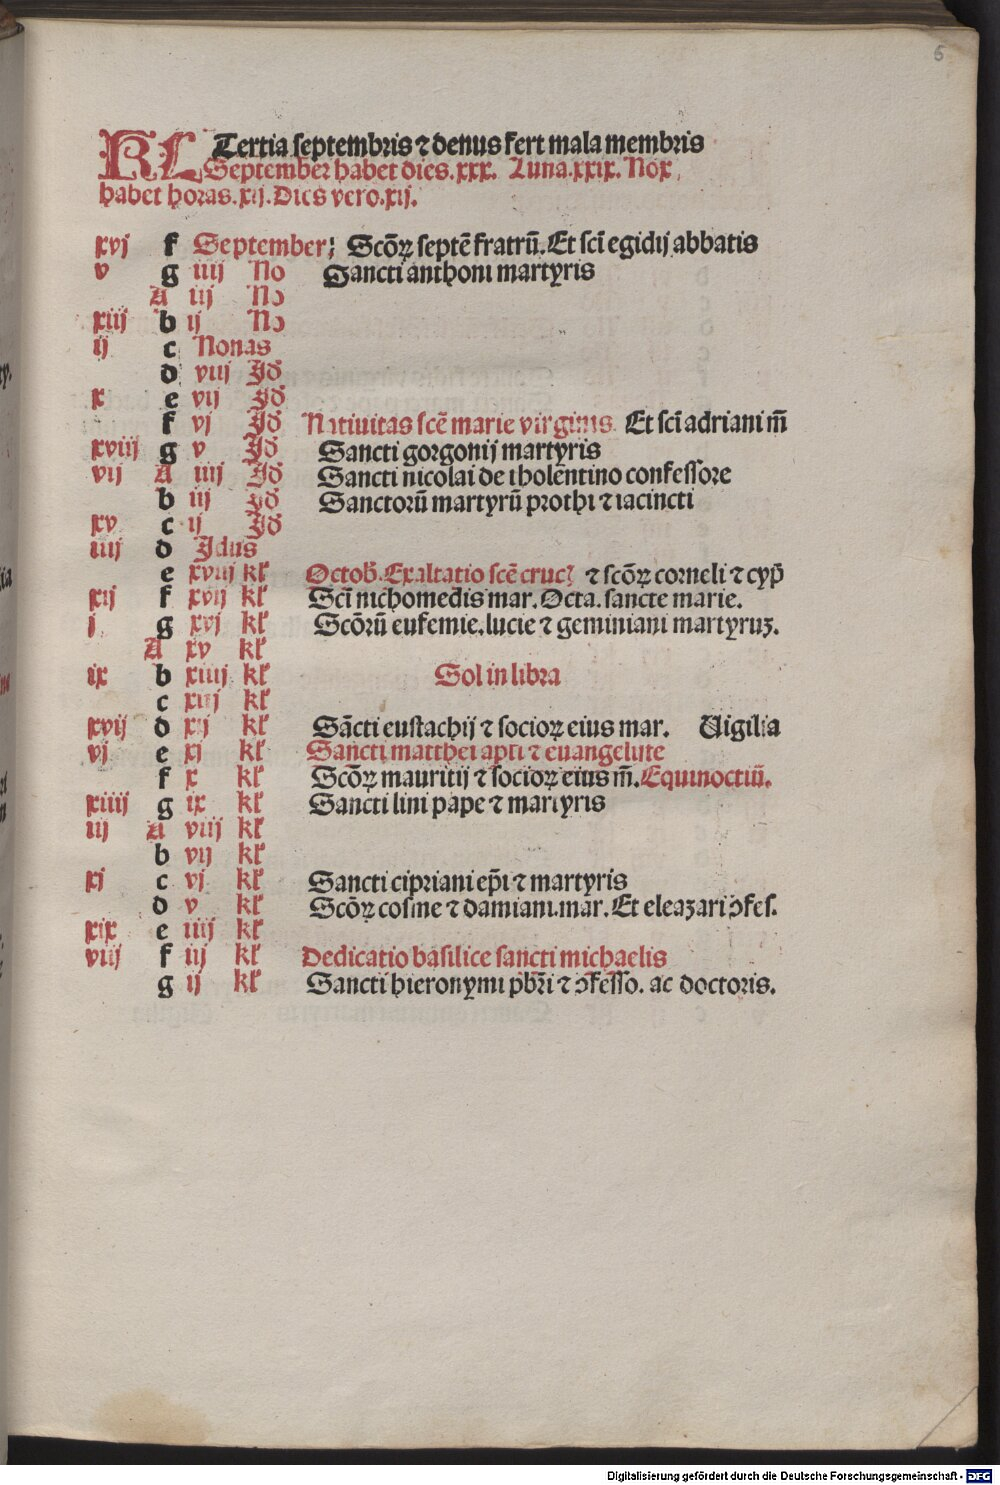 6
KL Tertia septembris ⁊ denus fert mala membris
September habet dies.xxx. Luna.xxix. Nox
habet horas.xij.Dies vero.xij.
xvj f September; Scōꝝ septē fratrū.Et sci̅ egidij abbatis
v g iiij No Sancti anthoni martyris
A iij No
xiij b ij No
ij c Nonas
d viij Id
x e vij Id
f vj Id Natiuitas scē marie virginis Et sci̅ adriani m̅
xviij g v Id Sancti gorgonij martyris
vij A iiij Id Sancti nicolai de tholentino confessore
b iij Id Sanctorū martyrū prothi ⁊ iacincti
xv c ij Id
iiij d Idus
e xviij kl Octob̄.Exaltatio scē crucꝭ ⁊ scōꝝ corneli ⁊ cyp̄
xij f xvij kl Sci̅ nichomedis mar. Octa. sancte marie.
j g xvj kl Scōrū eufemie.lucie ⁊ geminiani martyruꝫ.
A xv kl
ix b xiiij kl Sol in libra
c xiij kl
xvij d xij kl Sācti eustachij ⁊ socioꝝ eius mar. Uigilia
vj e xj kl Sancti matthei apti ⁊ euangeliste
f x kl Scōꝝ mauritij ⁊ socioꝝ eius m̅.Equinoctiū.
xiiij g ix kl Sancti lini pape ⁊ martyris
iij A viij kl
b vij kl
xj c vj kl Sancti cipriani ep̄i ⁊ martyris
d v kl Scōꝝ cosme ⁊ damiani.mar. Et eleazari ↄfes.
xix e iiij kl
viij f iij kl Dedicatio basilice sancti michaelis
g ij kl Sancti hieronymi pb̄ri ⁊ ↄfesso. ac doctoris.
Digitalisierung gefördert durch die Deutsche Forschungsgemeinschaft - DFG